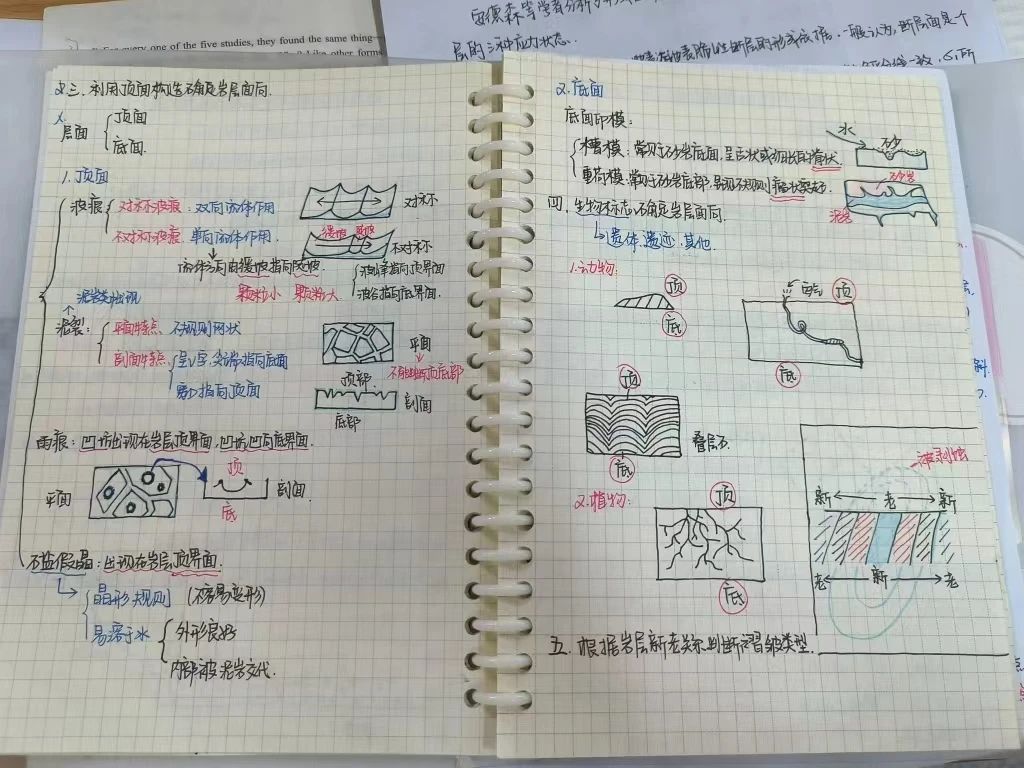 every one of the five studies, they found the same thing—
Like other forms
安德森等学者分析了
层的三种应力状态.
断层面是个
三.利用顶面构造确定岩层面向.
层面
顶面
底面.
1.顶面
波痕
对称波痕:双向流体作用
对称
不对称波痕 单向流体作用.
缓坡 陡坡
不对称
流体方向由缓坡指向陡坡
颗粒小 颗粒大
波峰指向顶界面
波谷指向底界面.
泥岩类出现
泥裂:
平面特点 不规则网状
平面
不能判断顶底部
剖面特点 呈V字,尖端指向底面
开口指向顶面
顶部
剖面
底部
雨痕:凹坑出现在岩层顶界面,凹坑凹向底界面.
平面
顶
底
剖面.
石盐假晶:出现在岩层顶界面.
晶形规则 (不容易变形)
易溶于水
外形良好
内部被泥岩交代.
2.底面
底面印模:
水
砂
槽模:常见于砂岩底面,呈舌状或
重荷模:常见于砂岩底部,呈现不规则瘤状突起.
砂岩
泥岩
四.生物标志确定岩层面向.
遗体 遗迹.其他.
1.动物:
顶
底
顶
底
顶
底
叠层石
2.植物:
顶
底
被剥蚀
新 老 新
老 新 老
五.根据岩层新老关系判断褶皱类型.